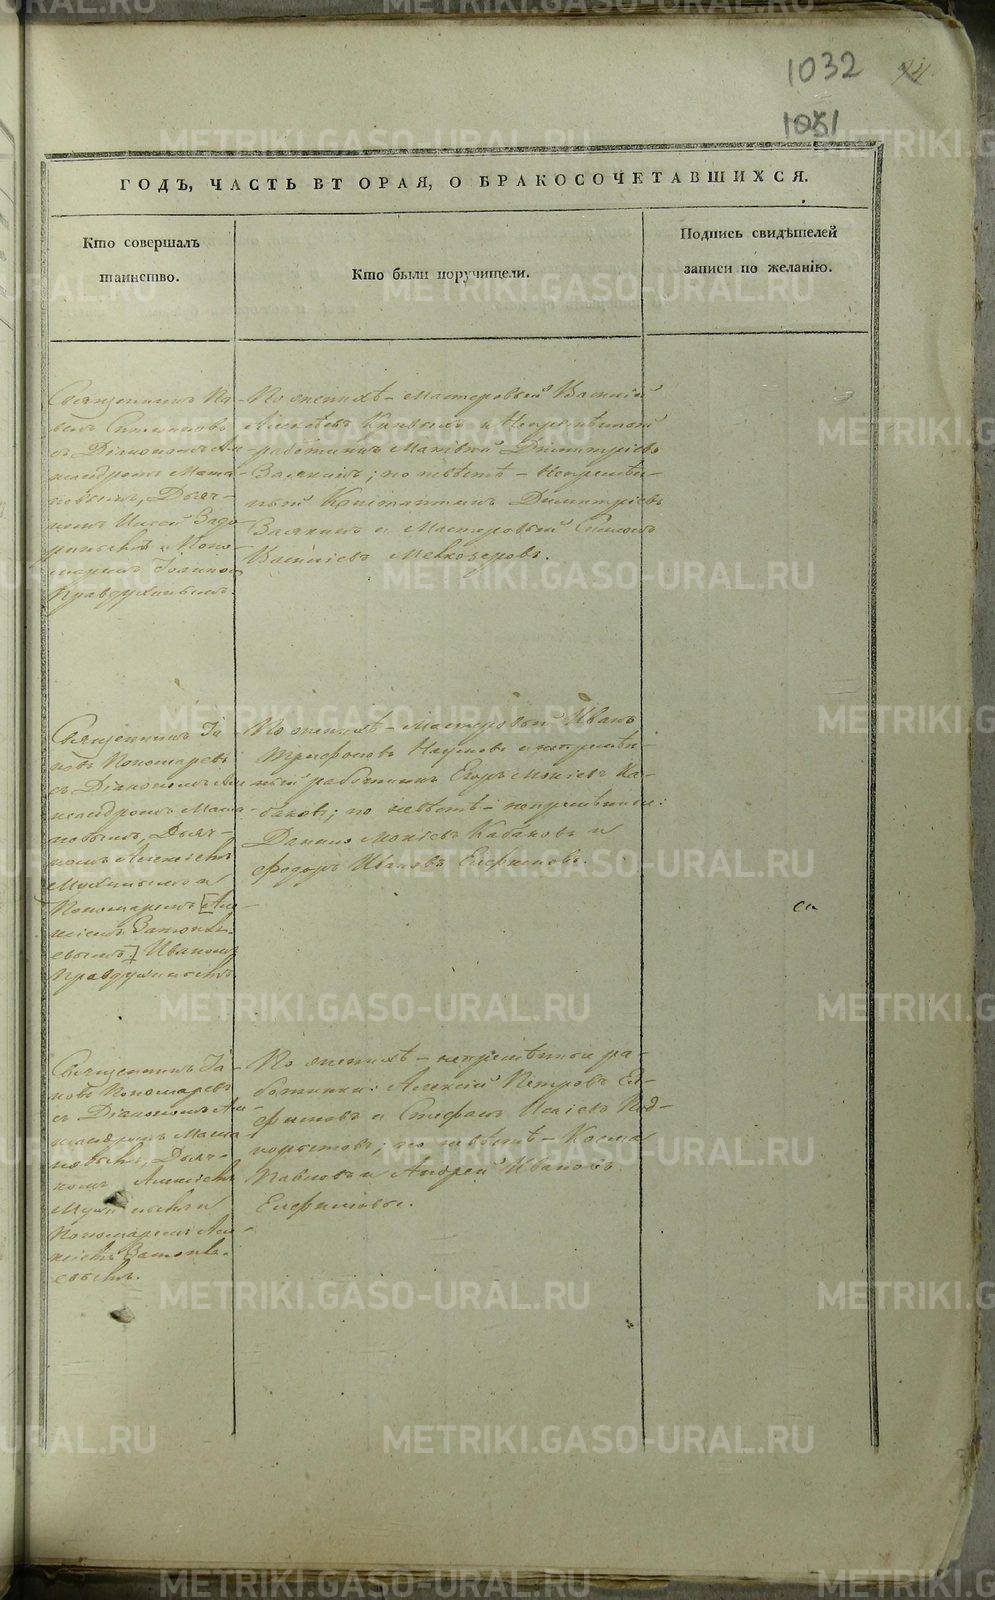 1032
1031
ГОДЪ, ЧАСТЬ ВТОРАЯ, О БРАКОСОЧЕТАВШИХСЯ.
Кто совершалъ
таинство.
Кто были поручители.
Подпись свидѣтелей
записи по желанію.
Священникъ Па-
велъ
съ Діакономъ Але-
ксандромъ Мама-
новымъ, Дьяч-
комъ
и Поно-
маремъ Іоанномъ
Правдухинымъ
По женихѣ – мастеровый Василій
и Непремѣнный
работникъ Матвѣй Дмитріевъ
Валякинъ; по невѣстѣ – непремѣн-
ный Константинъ Димитріевъ
Валякинъ и Мастеровый Симеонъ
Василіевъ Мелкозеровъ.
Священникъ Іа-
ковъ Пономаревъ
съ Діакономъ Але-
ксандромъ Мама-
новымъ, Дьяч-
комъ Алексіемъ
и
Пономаремъ [Але-
ксіемъ
евымъ] Иваномъ
Правдухинымъ
По женихѣ – мастеровый Иванъ
Трифоновъ Наумовъ и непремѣн-
ный работникъ Егоръ Мокіевъ Ка-
баковъ; по невѣстѣ – непремѣнные:
Данило Мокіевъ Кабаковъ и
Федоръ Ивановъ Елфимовъ.
Священникъ Іа-
ковъ Пономаревъ
съ Діакономъ Але-
ксандромъ Мама-
новымъ, Дьяч-
комъ Алексіемъ
и
Пономаремъ Але-
ксіемъ
евымъ.
По женихѣ – непремѣнные ра-
ботники: Алексѣй Петровъ Ел-
фимовъ и Стефанъ Исаіевъ Под-
корытовъ; по невѣстѣ – Косма
Павловъ и Андрей Ивановъ
Елфимовы.
METRIKI.GASO-URAL.RU